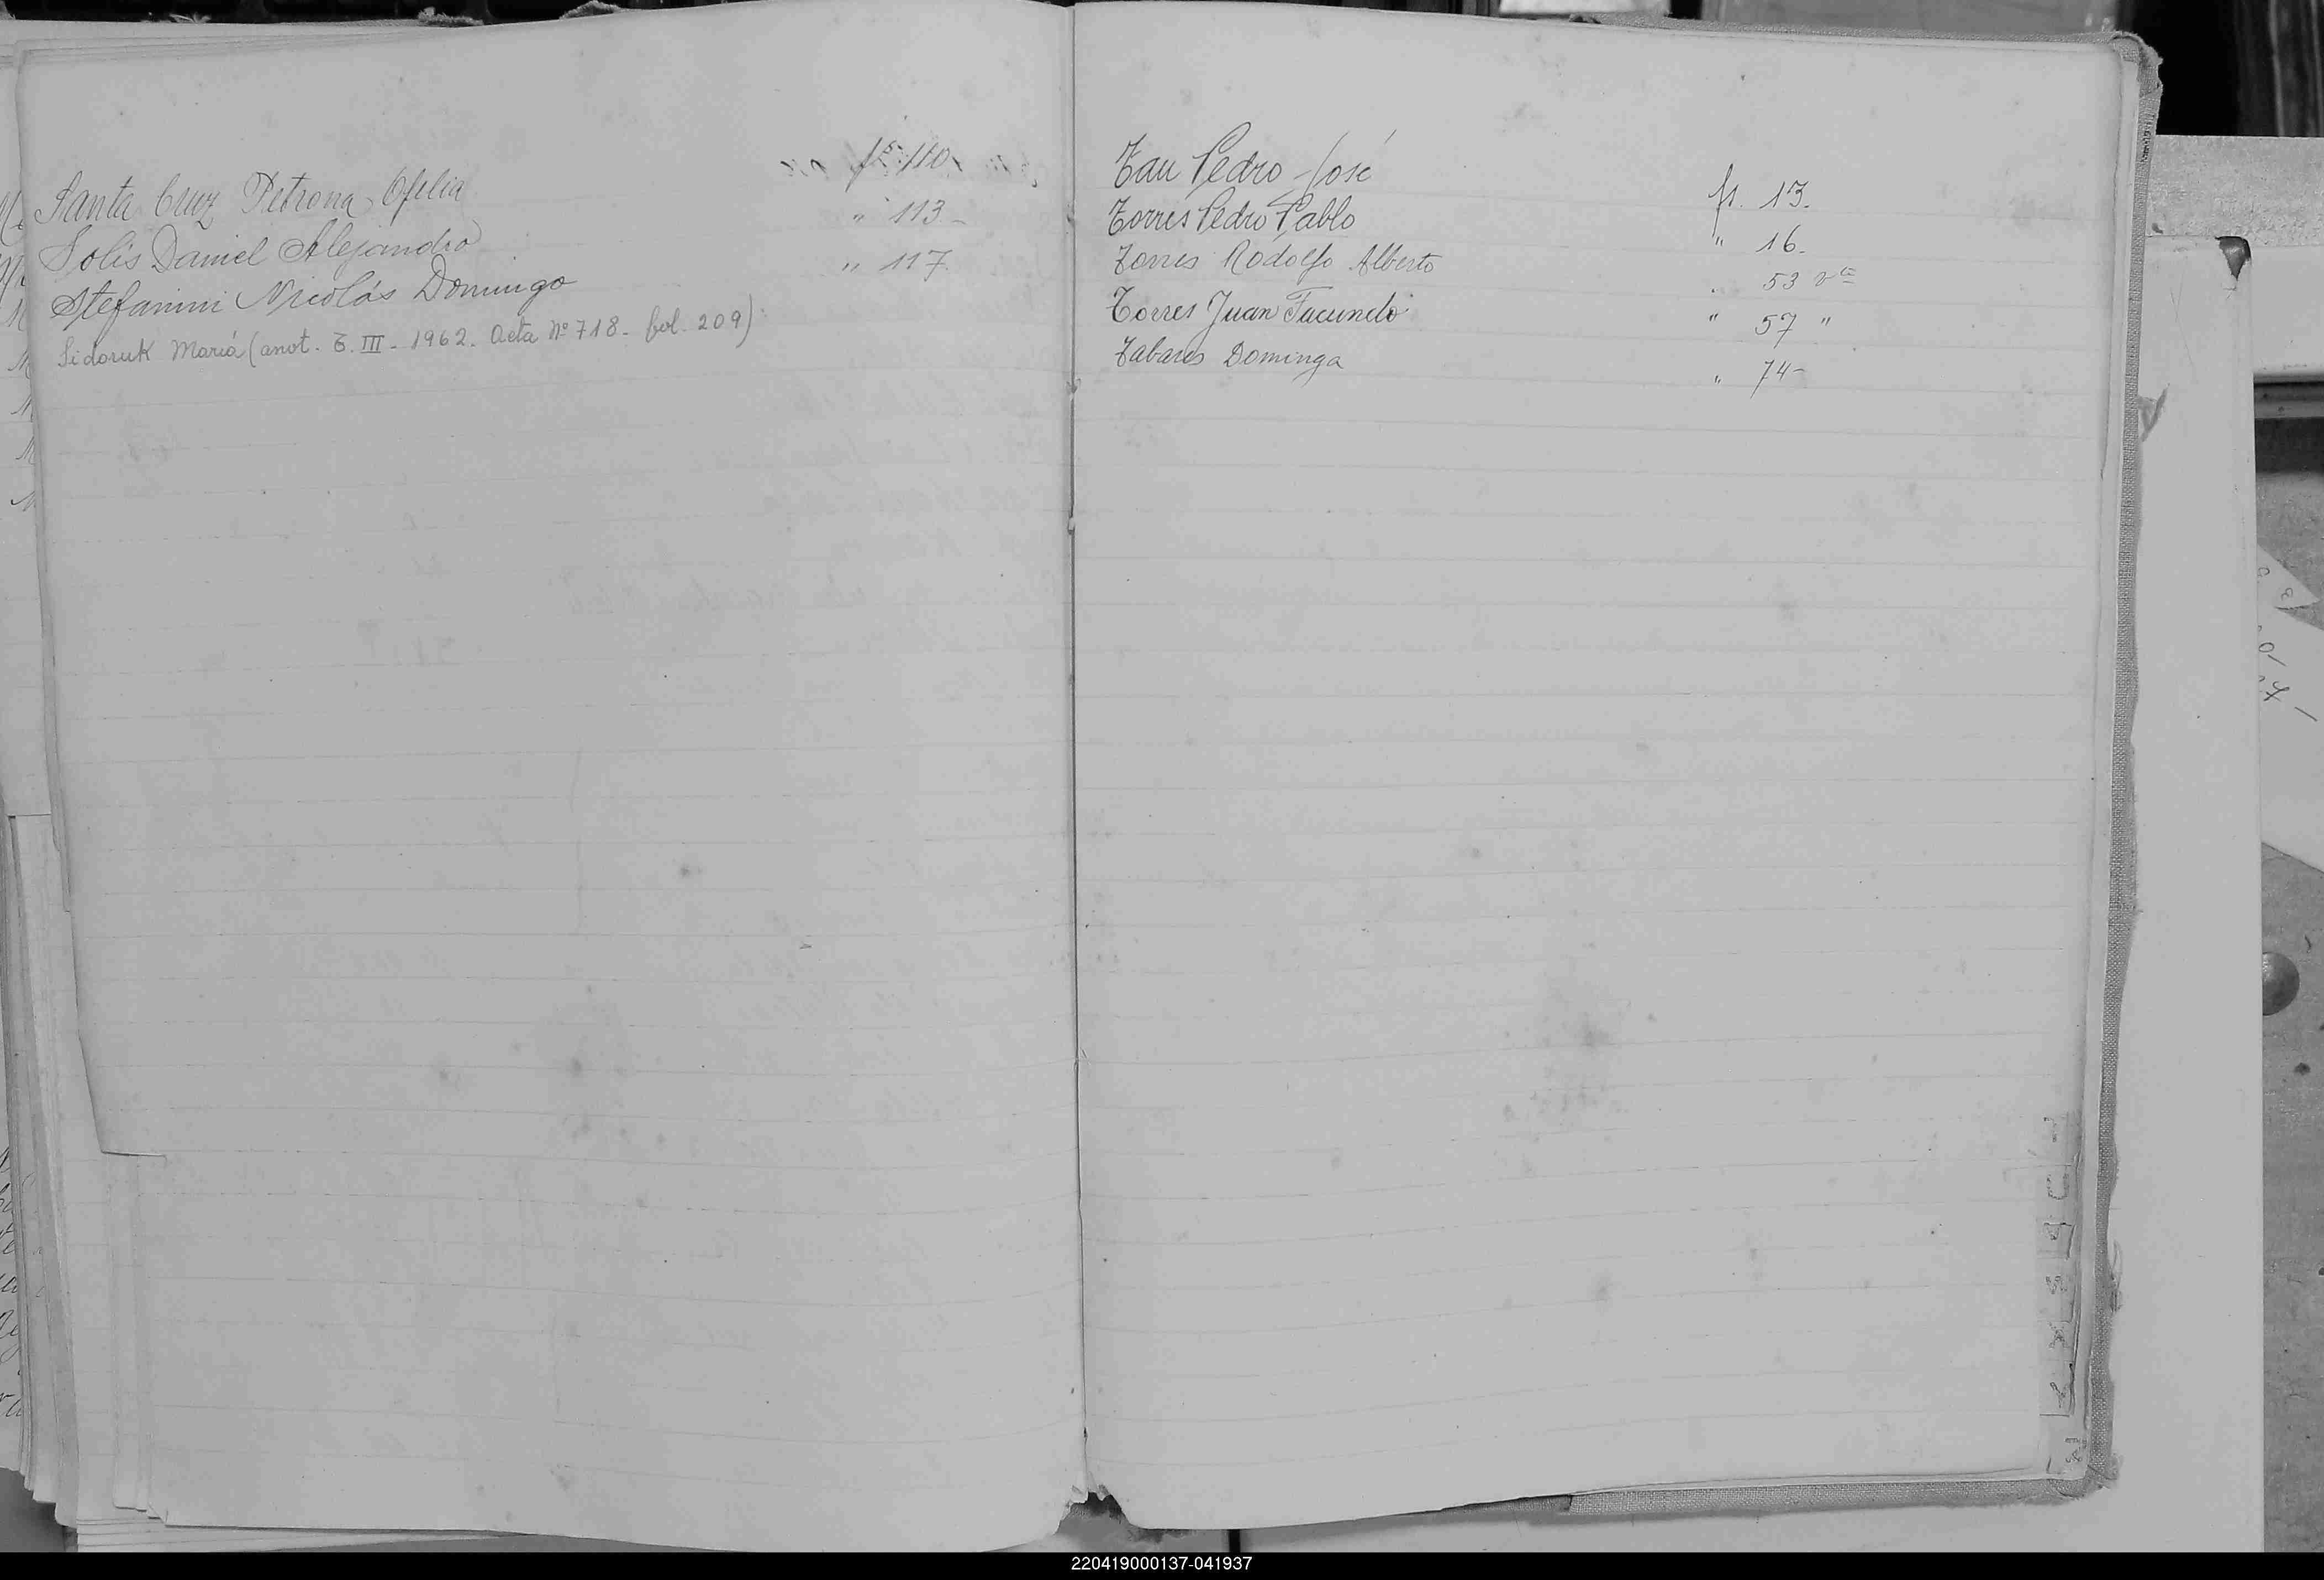 Santa Cruz Petrona Ofelia fs. 110
Solis Daniel Alejandro " 113-
Stefanini Nicolás Domingo " 117
Sidoruk María (anot. T. III - 1962. Acta Nº 718 - fol. 209)
Tau Pedro José fs. 13.
Torres Pedro Pablo " 16.
Torres Rodolfo Alberto " 53 vta
Torres Juan Facundo " 57 "
Tabares Dominga " 74-
220419000137-041937